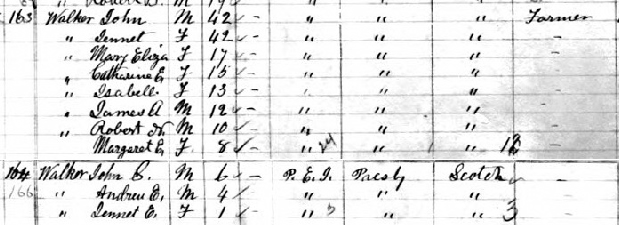 " Robert D. M 19 " " "
163 Walker John M 42 - " " " Farmer
" Jennet F 42 - " " " -
" Mary Eliza F 17 - " " " -
" Catharine E. F 15 - " " " -
" Isabell F 13 - " " " -
" James A M 12 - " " " -
" Robert M 10 - " " " -
Margaret E. F 8 - " 24 " " 13 -
164 Walker John C. M 6 - P. E. I. Presby Scotch -
166 " Andrew D. M 4 " " " -
" Jennet E. F 1 - " 3 " " 3 -